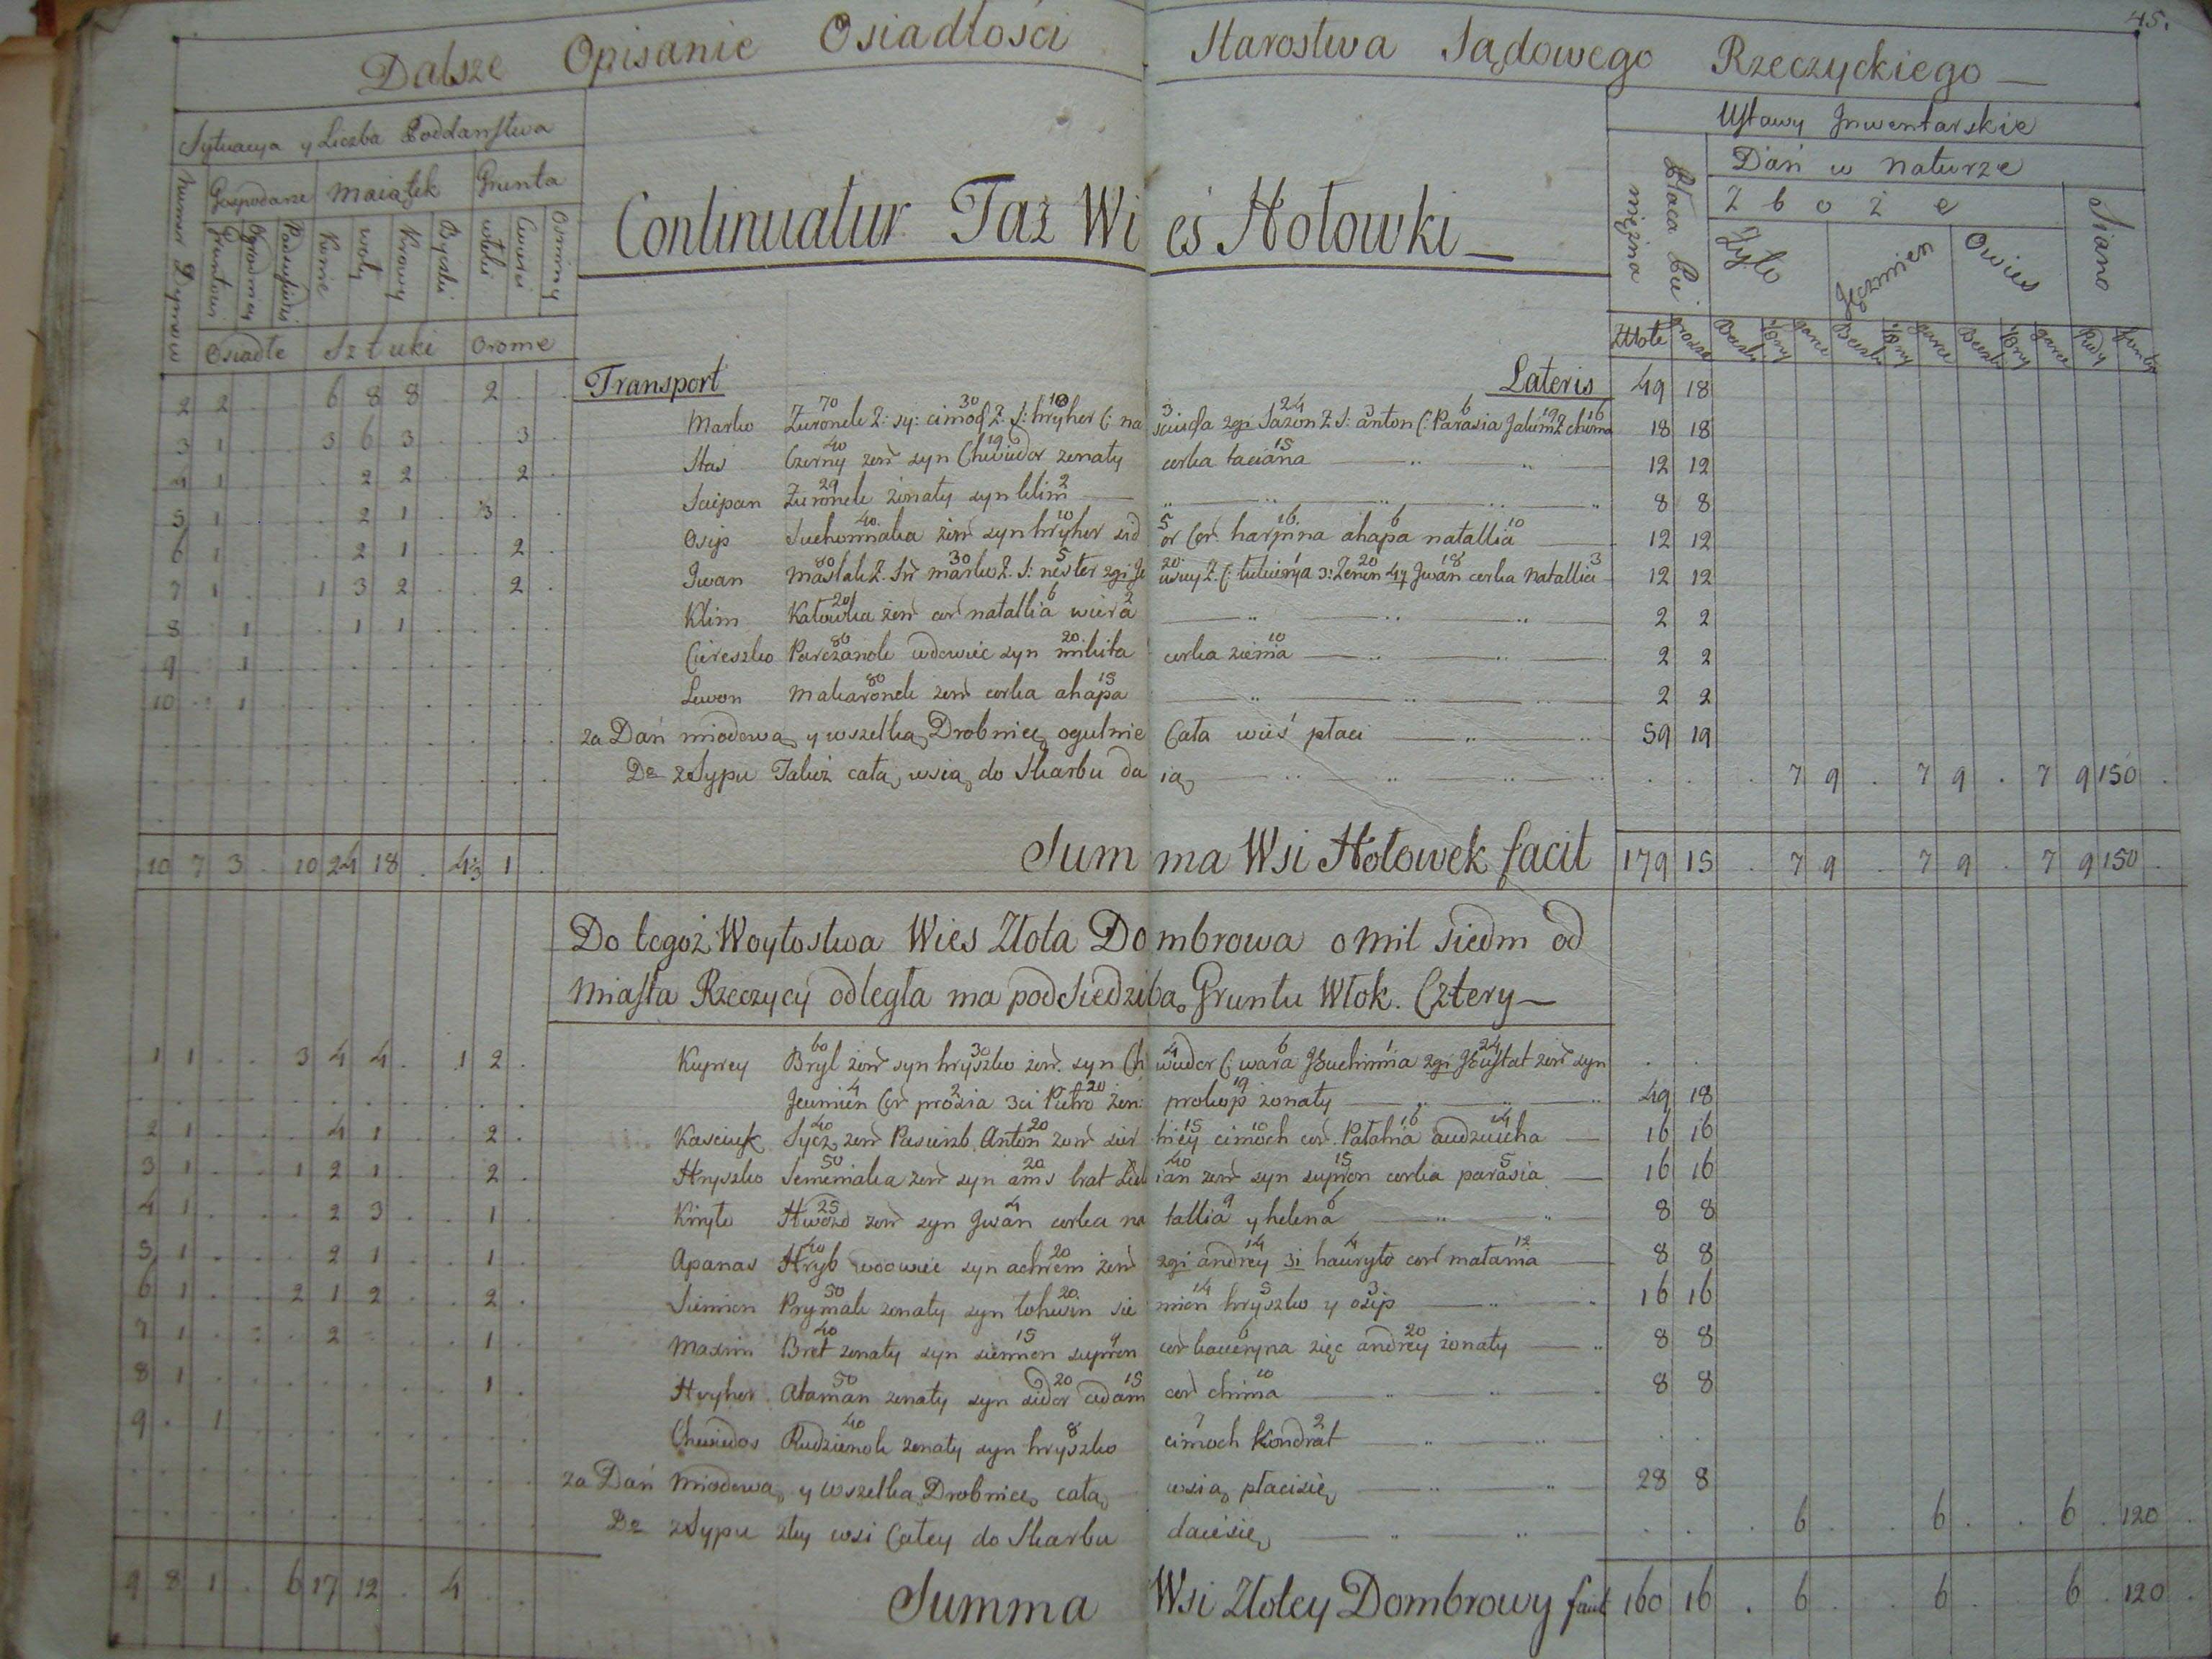 45.
Dalsze Opisanie Osiadłości Starostwa Sądowego Rzeczyckiego
Sytuacya y Liczba Poddanstwa
Ustawy Inwentarskie
Numer Dymow
Gospodarze Maiątek Grunta
Płaca Pieniężna
Dań w naturze
Zboże
Siano
Konie Woły Krowy Byczki
włoki Czwierci Osminy
Żyto Jęczmien Owies
Osiadłe Sztuki Orome
Złote grosze Beczki garce Beczki garce Beczki garce Pudy funty
Continuatur Taż Wieś Hołowki
2 2 . . 6 8 8 . 2 . . Transport Lateris 49 18
3 1 . . 3 6 3 . . 3 . Marko Zuronek 70 Z: sy: cimoch 30 Z. S: hryhor 10 C: na 3 2gi Sazon 24 Z S: anton 3 C: Parasia 6 18 18
4 1 . . . 2 2 . . 2 . Stas Czerny 40 żon syn Chwiedor 19 zonaty corka taciana 15 12 12
5 1 . . . 2 1 . ⅓ . . Sciepan Zuronek 29 żonaty syn klim 2 8 8
6 1 . . . 2 1 . . 2 . Osip 40 żon syn hryhor 10 sidor 5 Cor. harpina 16 ahapa 6 natallia 10 12 12
7 1 . . 1 3 2 . . 2 . Jwan Maslak 80 Z. Sn marko 30 Z. S: nester 5 2gi 20 3: Zenon 20 4ty Jwan 18 corka Natallia 3 12 12
8 . 1 . . 1 1 . . . . Klim Katowka 20 żon cor natallia 6 wiera 2 2 2
9 . 1 . . . . . . . . Ciereszko Parczanok 80 wdowiec syn mikita 20 corka zienia 10 2 2
10 . 1 . . . . . . . . Lewon Makaronek 80 zon corka ahapa 15 2 2
za Dań miodową y wszelką Drobnicę ogulnie Cała wieś płaci 59 19
Do zSypu Takoż całą wsią do Skarbu daią 7 9 . 7 9 . 7 9 150 .
10 7 3 . 10 24 18 . 4⅓ 1 . Summa Wsi Hołowek facit 179 15 . 7 9 . 7 9 . 7 9 150 .
Do tegoż Woytostwa Wies Złota Dombrowa o mil siedm od
Miasta Rzeczycy odległa ma pod siedzibą Gruntu Włok. Cztery
1 1 . . 3 4 4 . 1 2 . Kuprey Bryl 60 żon syn hryszko 30 żon. syn Chwiedor 4 C: wara 6 1 2gi 24 żon syn . .
Jeumien 4 Cor prosia 2 3ci Pietro 20 żen: prokop 19 żonaty 49 18
2 1 . . . 4 1 . . 2 . Kasciuk Sycz 40 żon Pasierzb. Anton 20 zon sierhiey 15 cimoch 10 cor. Pałahia 16 4 16 16
3 1 . . 1 2 1 . . 2 . Hryszko Semeniaka 50 zon syn amos 20 brat 40 zon syn supron 15 corka parasia 5 16 16
4 1 . . . 2 3 . . 1 . Kiryło Hwozd 25 zon syn Jwan 4 corka natallia 9 y helena 6 8 8
5 1 . . . 2 1 . . 1 . Apanas Hryb 40 wdowiec syn achrem 20 żon 2gi andrey 14 3i hauryło 4 cor matania 12 8 8
6 1 . . 2 1 2 . . 2 . Siemion Prymak 50 zonaty syn łohwin 20 siemion 14 hryszko 5 y osip 3 16 16
7 1 . . . 2 . . . 1 . Maxim Bret 40 zonaty syn siemion 15 supron 9 cor kateryna 6 zięc andrey 20 żonaty 8 8
8 1 . . . . . . . 1 . Hryhor Ataman 50 zonaty syn sidor 20 adam 15 cor chima 10 8 8
9 . 1 . . . . . . . . Chwiedos Rudzienok 40 zonaty syn hryszko 8 cimoch 7 Kondrat 2 . .
za Dań Miodową y wszelką Drobnicę całą wsią płacisię 28 8
Do zSypu ztey wsi Całey do Skarbu daiesię . . . 6 . . 6 . . 6 . 120 .
9 8 1 . 6 17 12 . 4 . . Summa Wsi Złotey Dombrowy facit 160 16 . 6 . . 6 . . 6 . 120 .